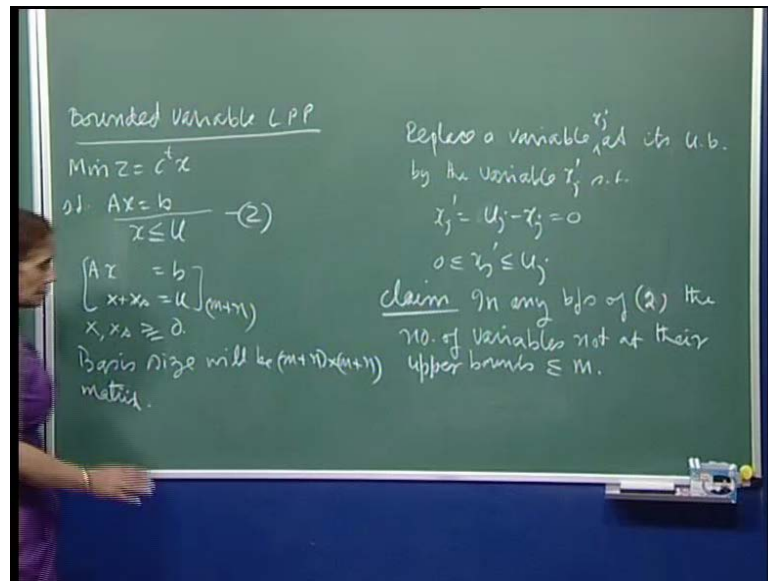 Bounded Variable LPP
Min Z = cᵗx
s.t. Ax = b
x ≤ U —(2)
[Ax = b
x + xₛ = u](m+n)
x, xₛ ≥ 0.
Basis size will be (m+n)x(m+n)
matrix.
Replace a variable xⱼ at its u.b.
by the variable xⱼ' s.t.
xⱼ' = Uⱼ - xⱼ = 0
0 ≤ xⱼ' ≤ Uⱼ
claim In any bfs of (2) the
no. of variables not at their
upper bounds ≤ m.